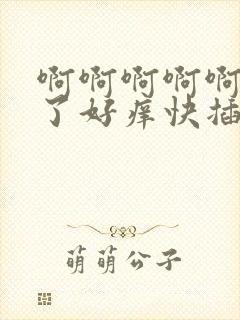 啊啊啊啊啊
了好痒快插
萌萌公子